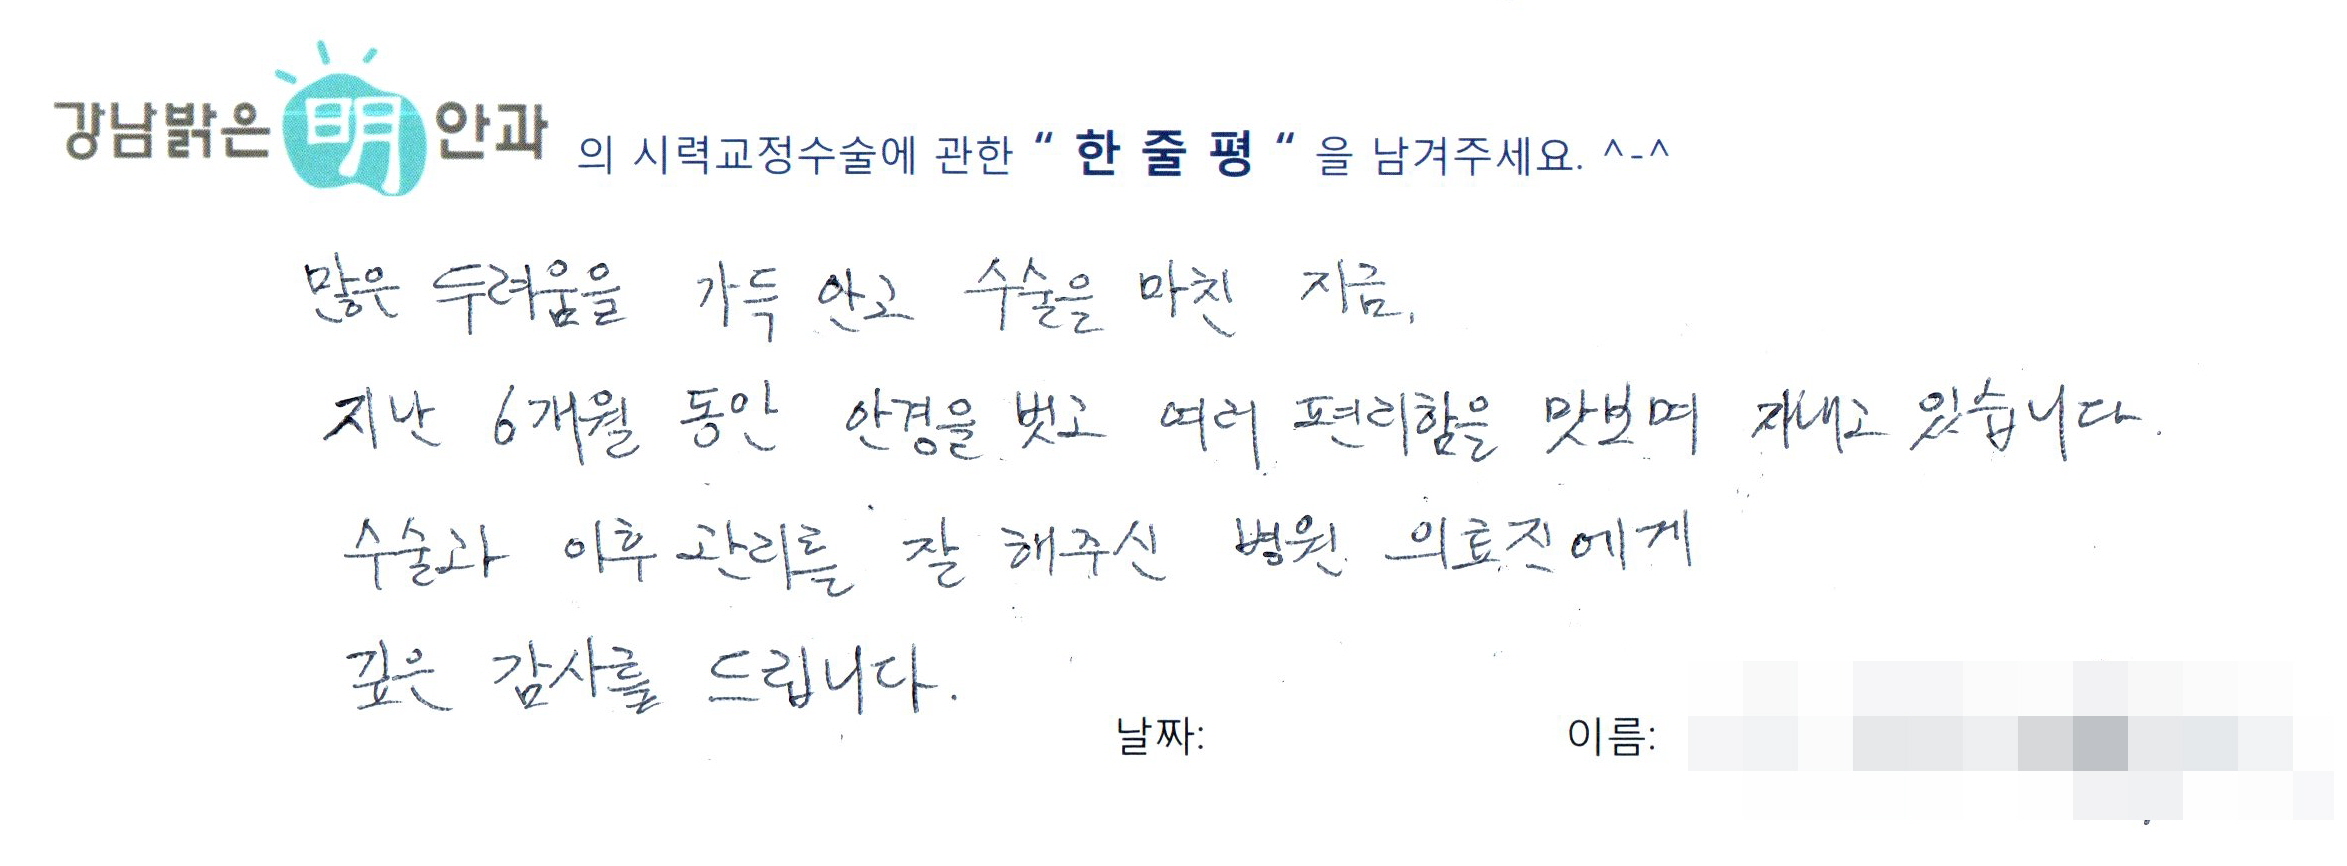 강남밝은 明 안과 의 시력교정수술에 관한 “ 한 줄 평 “ 을 남겨주세요. ^-^
많은 두려움을 가득 안고 수술을 마친 지금,
지난 6개월 동안 안경을 벗고 여러 편리함을 맛보며 지내고 있습니다.
수술과 이후 관리를 잘 해주신 병원 의료진에게
깊은 감사를 드립니다.
날짜: 이름: